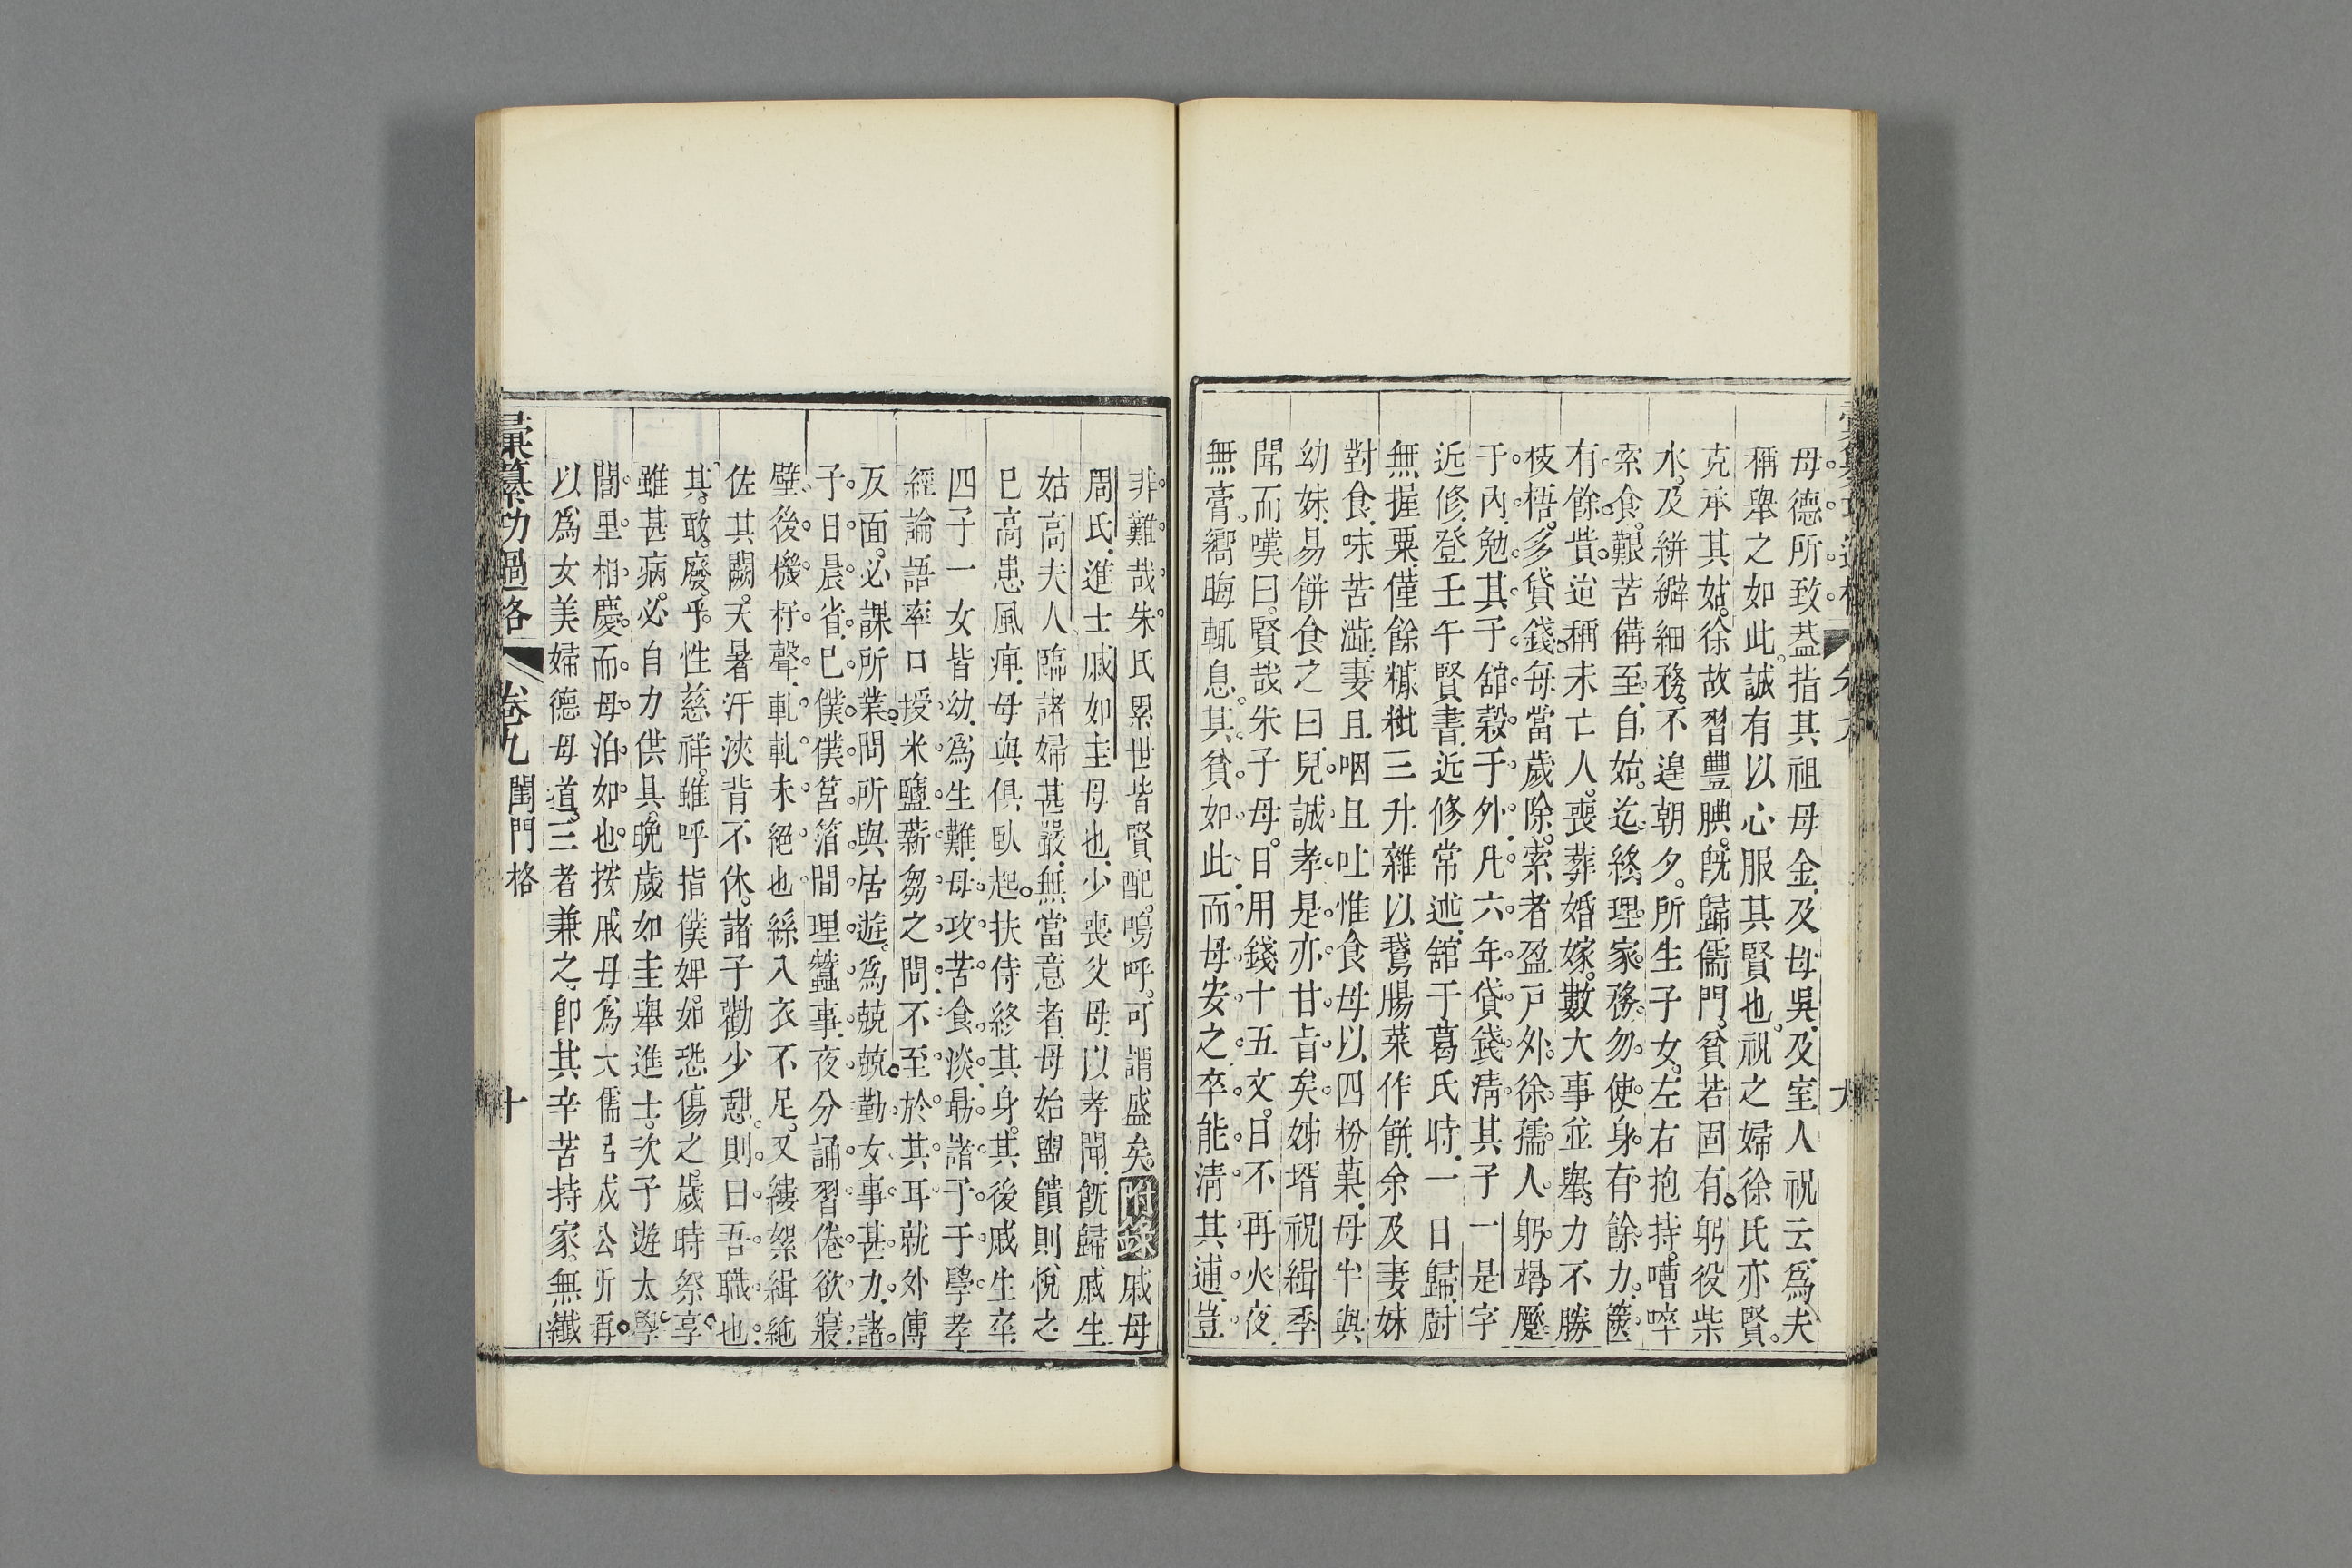 母德所致葢指其祖母金及母吳及室人祝云爲夫
稱舉之如此誠有以心服其賢也祝之婦徐氏亦賢
克承其姑徐故習豐腆旣歸儒門貧若固有躬役柴
水及絣繲細務不遑朝夕所生子女左右抱持嘈啐
索食艱苦備至自始迄終理家務勿使身有餘力篋
有餘貲迨稱未亡人喪葬婚嫁數大事並舉力不勝
枝梧多貸錢每當歲除索者盈戸外徐孺人躬壻壓
于內勉其子舘穀于外凡六年貸錢淸其子一是字
近修登壬午賢書近修常述舘于葛氏時一日歸厨
無握粟僅餘糠粃三升雜以鵞腸菜作餅余及妻妹
對食味苦澁妻且咽且吐惟食母以四枌菓母半與
幼妹易餅食之曰兒誠孝是亦甘旨矣姊壻祝緝季
聞而嘆曰賢哉朱子母日用錢十五文日不再火夜
無膏嚮晦輒息其貧如此而母安之卒能淸其逋豈
非難哉朱氏累世皆賢配嗚呼可謂盛矣附錄戚母
周氏進士戚如圭母也少喪父母以孝聞旣歸戚生
姑高夫人臨諸婦甚嚴無當意者母始盥饋則悅之
巳高患風痺母與俱臥起扶侍終其身其後戚生卒
四子一女皆幼爲生難母攻苦食淡勗諸子于學孝
經論語率口授米鹽薪芻之問不至於其耳就外傅
反面必課所業問所與居遊爲兢兢勤女事甚力諸
子日晨省巳僕僕筥箔間理蠶事夜分誦習倦欲寢
壁後機杼聲軋軋未絕也絲入衣不足又縷絮緝絁
佐其闕天暑汗浹背不休諸子勸少憇則曰吾職也
其敢廢乎性慈祥雖呼指僕婢如恐傷之歲時祭享
雖甚病必自力供具晚歲如圭舉進士次子遊太學
閭里相慶而母泊如也按戚母爲大儒呂成公所再
以爲女美婦德母道三者兼之卽其辛苦持家無纖
彙纂功過格 卷九 閨門格 十